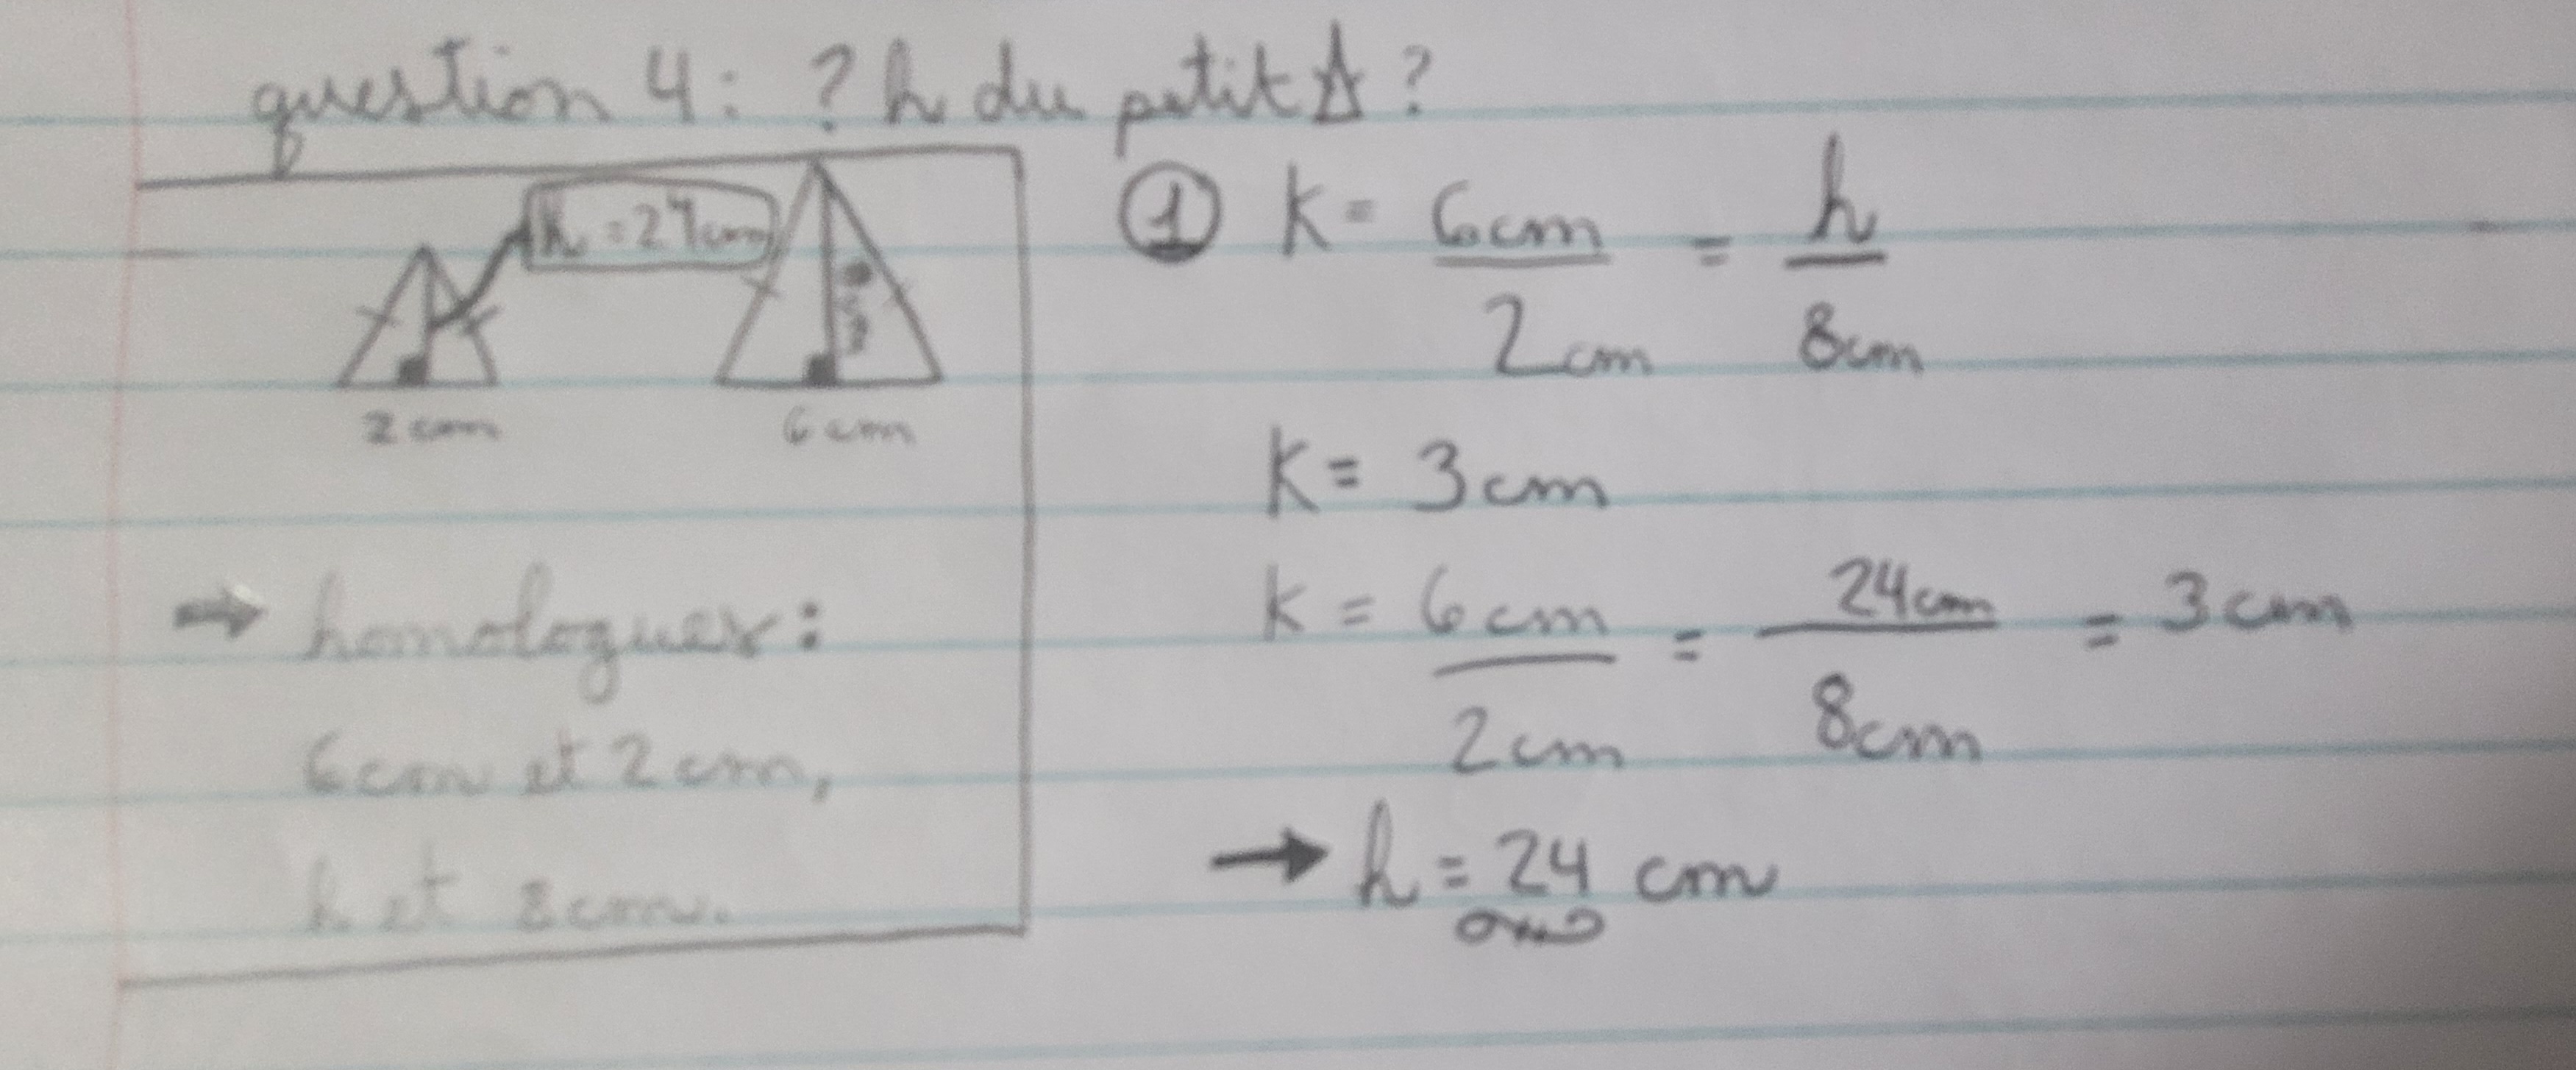 question 4: ? h du petit △ ?
h = 24cm
2cm
6cm
→ homologues:
6cm et 2cm,
h et 8cm.
① K = 6cm/2cm = h/8cm
K = 3cm
K = 6cm/2cm = 24cm/8cm = 3cm
→ h = 24 cm